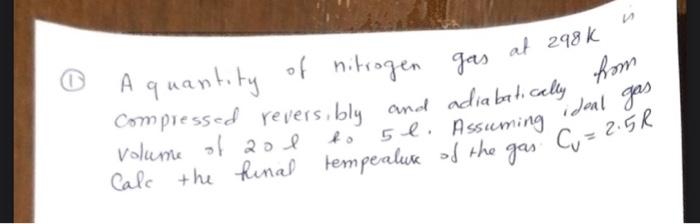 ① A quantity of nitrogen gas at 298K is
compressed reversibly and adiabatically from
volume of 20l to 5l. Assuming ideal gas
Calc the final temperature of the gas. Cv = 2.5R